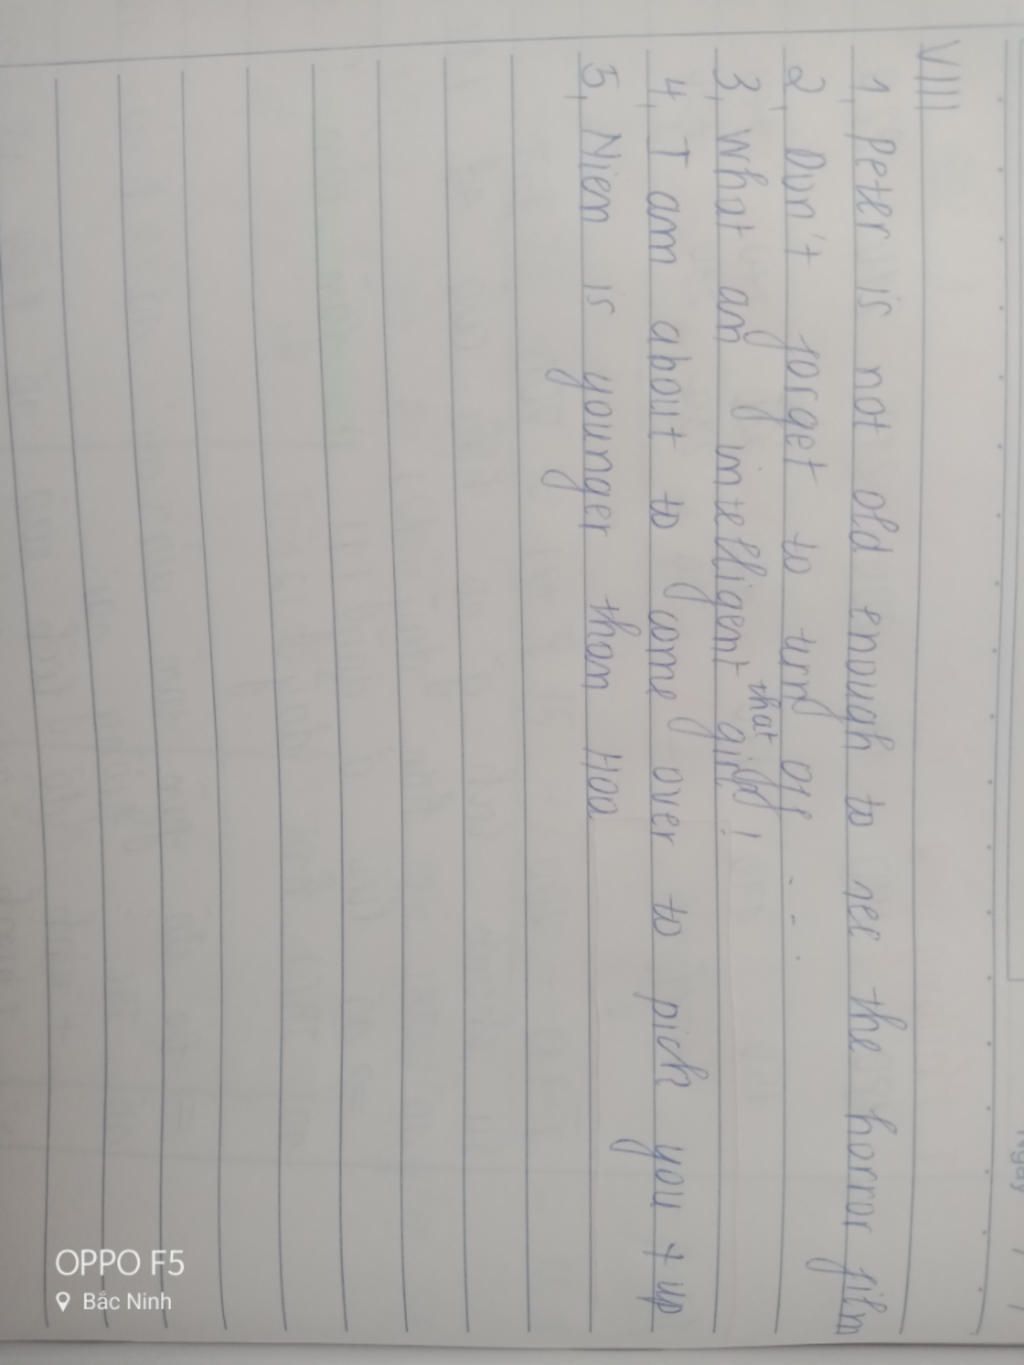 VIII
1, Peter is not old enough to see the horror film
2, Don't forget to turn off . . .
3, What an intelligent that girl !
4, I am about to come over to pick you + up
5, Nien is younger than Hoa
Ngày
OPPO F5
Bắc Ninh